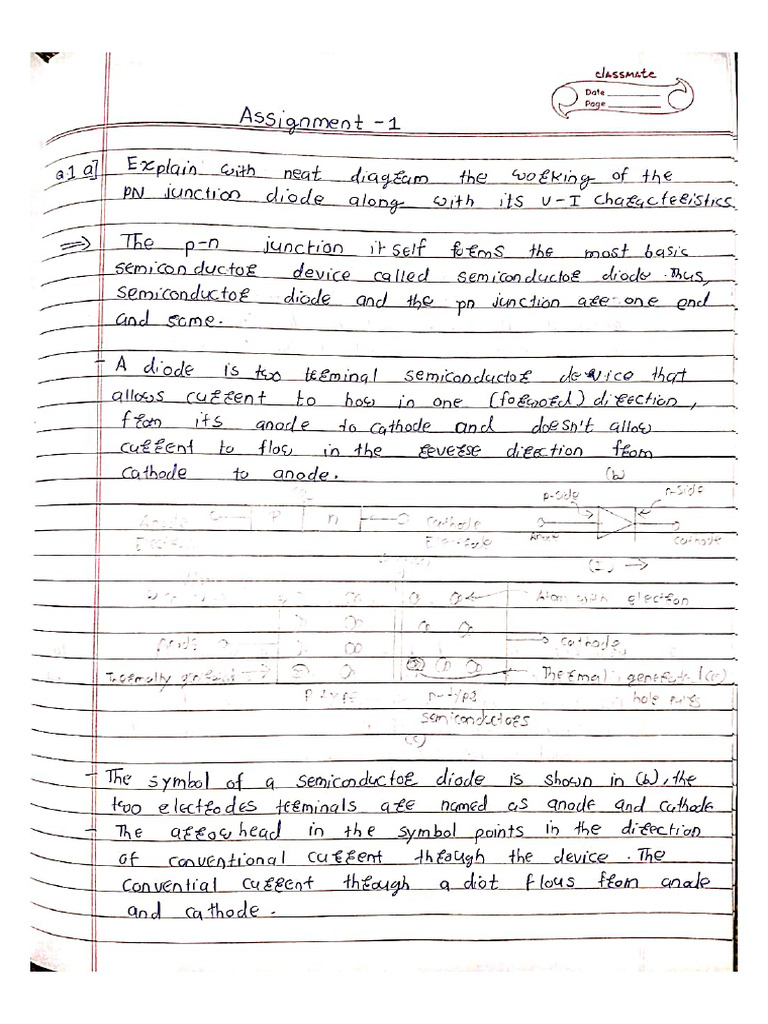 classmate
Date
Page
Assignment -1
Q1 a] Explain with neat diagram the working of the
PN junction diode along with its V-I characteristics
⇒ The p-n junction itself forms the most basic
semiconductor device called semiconductor diode. Thus,
semiconductor diode and the pn junction are one end
and same.
- A diode is two terminal semiconductor device that
allows current to how in one (forword) direction,
from its anode to cathode and doesn't allow
current to flow in the reverse direction from
cathode to anode.
(b)
p-side n-side
Anode P n cathode
Electrode Anode cathode
(I)
Atom with electron
cathode
Thermally Thermal (c)
P type n-type hole
semiconductors
(c)
- The symbol of a semiconductor diode is shown in (b), the
two electrodes terminals are named as anode and cathode
- The arrow head in the symbol points in the direction
of conventional current through the device. The
convential current through a diot flows from anode
and cathode.